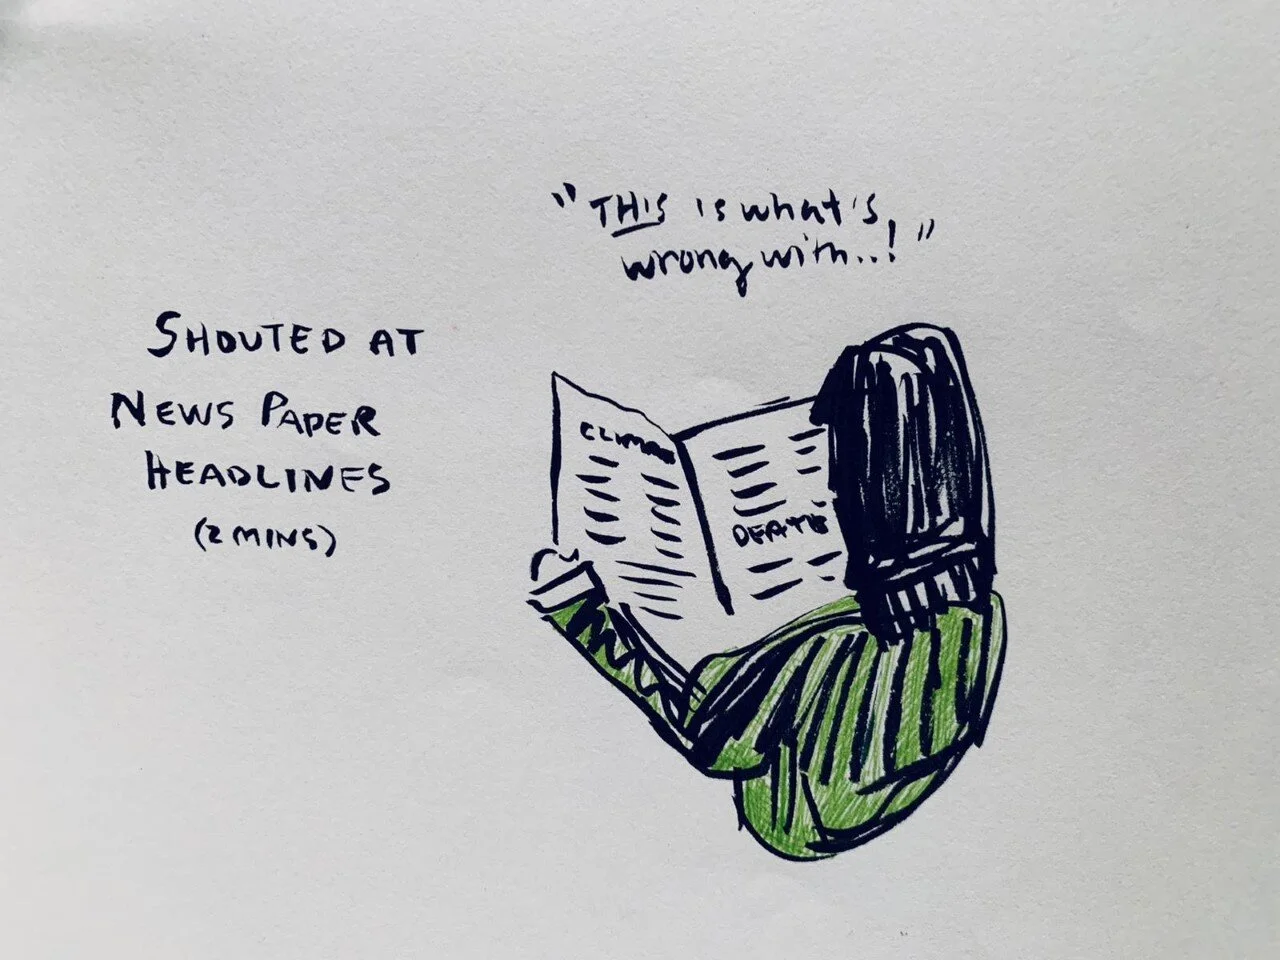 "THIS is what's
wrong with..!"
SHOUTED AT
NEWS PAPER
HEADLINES
(2 MINS)
CLIMATE
DEATHS